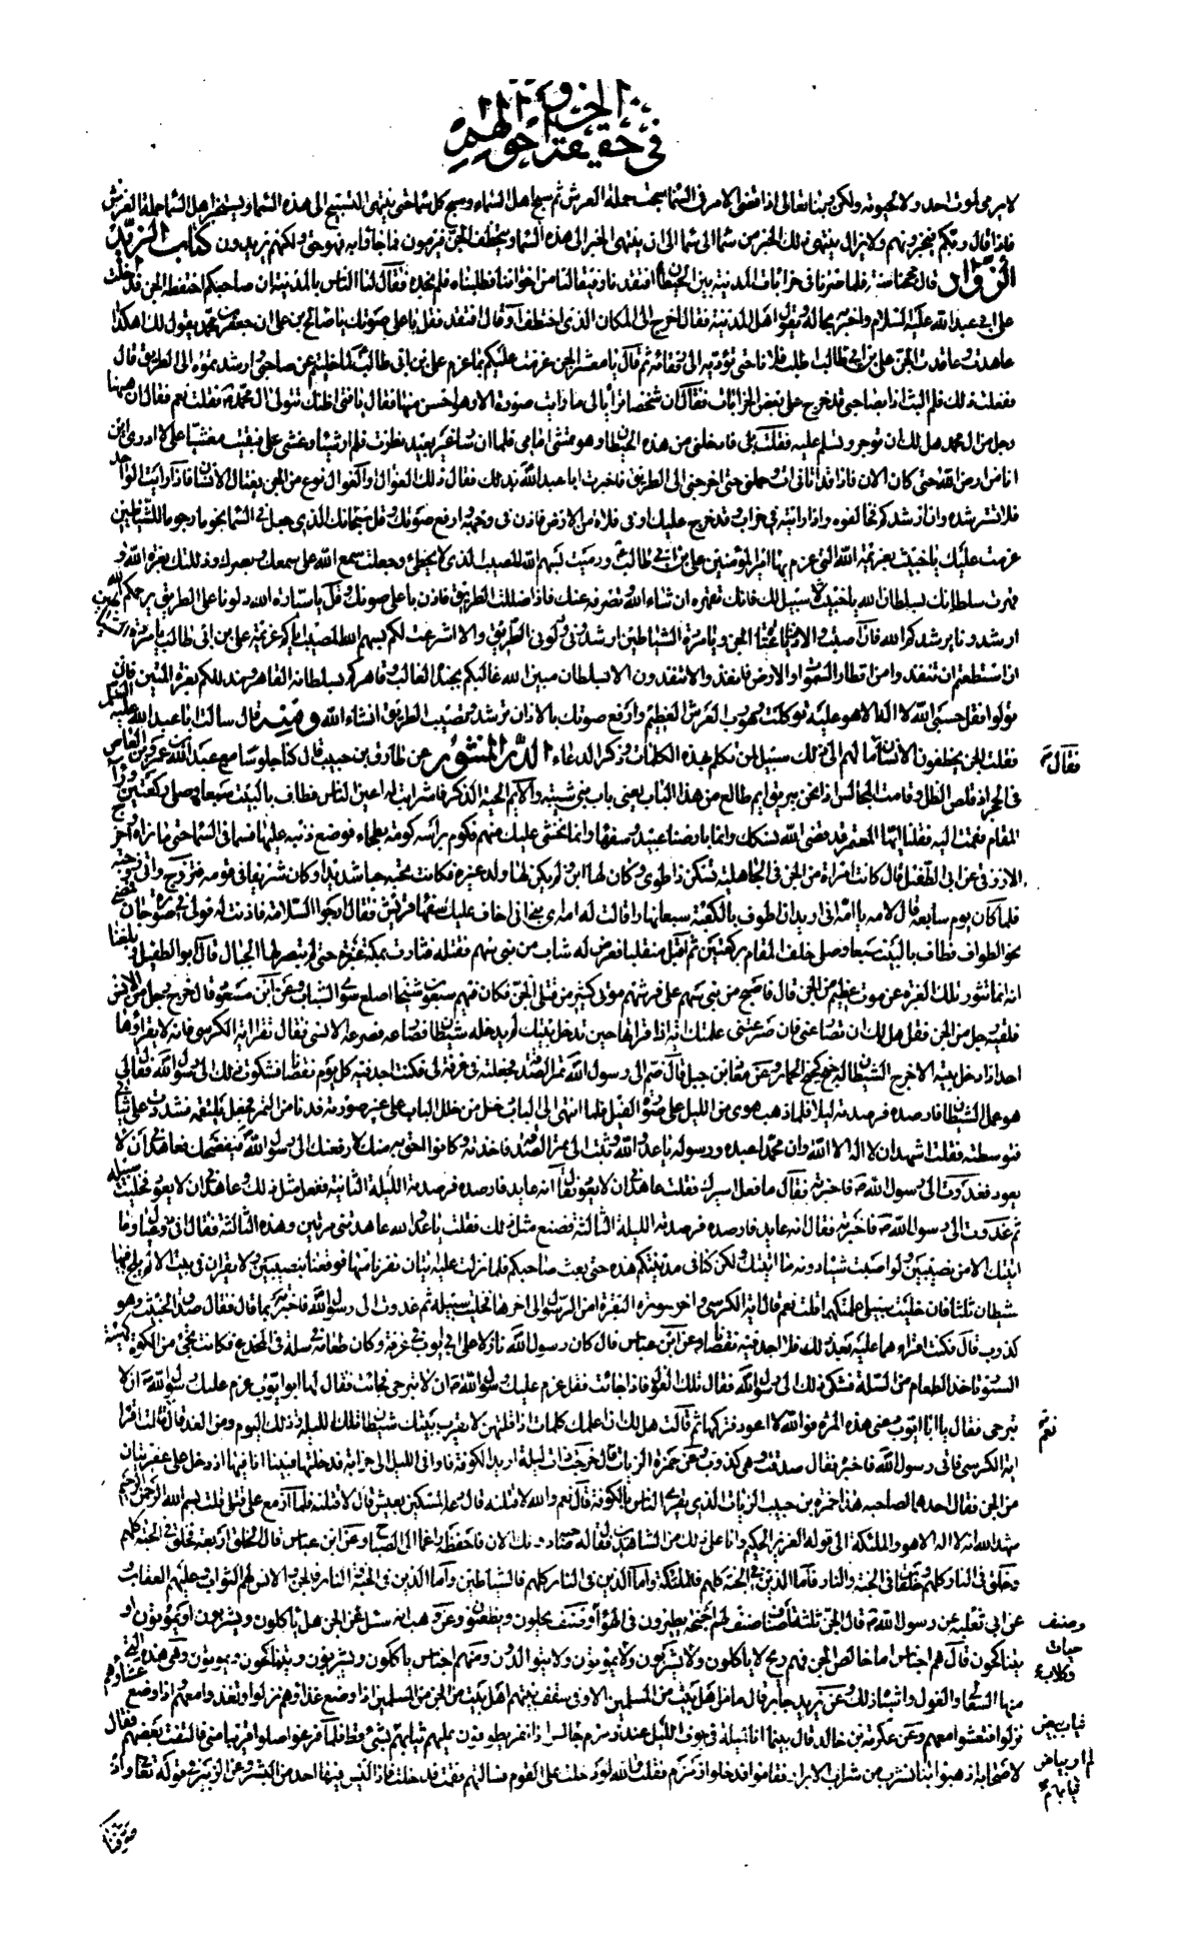 في حقيقة الجن و احوالهم
لا يرمى لموت احد ولا لحيوته ولكن ربنا تعالى اذا قضى الامر في السماء سبحت حملة العرش ثم سبح اهل السماء وسبح كل سماء حتى ينتهى التسبيح الى هذه السماء ويستخبر اهل السماء حملة العرش
ماذا قال ربكم فيخبرونهم ولا يزال ينتهى ذلك الخبر من سماء الى سماء الى ان ينتهى الخبر الى هذه السماء ويخطف الجن فيرمون فما جاؤا به فهو حق ولكنهم يزيدون كتاب
قال حججنا سنة فلما صرنا في خرابات المدينة بين الحيطان افتقدنا رفيقا لنا من اخواننا فطلبناه فلم نجده فقال لنا الناس بالمدينة ان صاحبكم اختطفه الجن فدخلت
على ابى عبد الله عليه السلام واخبرته بحاله وبقول اهل المدينة فقال اخرج الى المكان الذى اختطف او قال افتقد فقل باعلى صوتك يا صالح بن على ان جعفر بن محمد يقول لك اهكذا
عاهدت وعاقدت الجن على بن ابى طالب اطلب فلانا حتى تؤديه الى رفقائه ثم قال يا معشر الجن عزمت عليكم بما عزم على بن ابى طالب لما خليتم عن صاحبى وارشدتموه الى الطريق قال
ففعلت ذلك فلم البث اذا بصاحبى قد خرج على بعض الخرابات فقال ان شخصا ترأى الى ما رايت صورة الا وهو احسن منها فقال يا فتى اظنك تتولى ال محمد فقلت نعم فقال ان ههنا
رجل من ال محمد هل لك ان توجر وتسلم عليه فقلت بلى فادخلنى من هذه الحيطان وهو يمشى امامى فلما ان سار غير بعيد نظرت فلم ار شيئا وغشى على فبقيت مغشيا على لا ادرى اين
انا من ارض الله حتى كان الان فاذا قد اتانى ات وحملنى حتى اخرجنى الى الطريق فاخبرت ابا عبد الله بذلك فقال ذلك الغوال او الغول نوع من الجن يغتال الانسان فاذا رايت الواحد
فلا تسترشده وان ارشدكم فخالفوه واذا رايته في خراب وقد خرج عليك او في فلاة من الارض فاذن في وجهه وارفع صوتك وقل سبحان الذى جعل في السماء نجوما رجوما للشياطين
عزمت عليك يا خبيث بعزيمة الله التى عزم بها امير المؤمنين على بن ابى طالب ورميت بسهم الله المصيب الذى لا يخطئ وجعلت سمع الله على سمعك وبصرك وذللتك بعزة الله و
قهرت سلطانك بسلطان الله يا خبيث لا سبيل لك فانك تقهره ان شاء الله وتصرفه عنك فاذا ضللت الطريق فاذن باعلى صوتك وقل يا سيارة الله دلونا على الطريق يرحمكم الله
ارشدونا يرشدكم الله فان اصبت والا فناد يا عتاة الجن ويا مردة الشياطين ارشدونى ودلونى الطريق والا اشرعت لكم بسهم الله المصيب اياكم عزيمة على بن ابى طالب يا مردة
ان استطعتم ان تنفذوا من اقطار السموات والارض فانفذوا لا تنفذون الا بسلطان مبين الله غالبكم بجنده الغالب وقاهركم بسلطانه القاهر ومذللكم بعزة المتين فان
تولوا فقل حسبى الله لا اله الا هو عليه توكلت وهو رب العرش العظيم وارفع صوتك بالاذان ترشد وتصيب الطريق انشاء الله ومنه قال سالت ابا عبد الله عليه
فقلت الجن يخطفون الانسان فقال ما لهم الى ذلك سبيل لمن تكلم بهذه الكلمات وذكر الدعاء الدر المنثور عن طارق بن حبيب قال كنا جلوسا مع عبد الله بن عمرو بن العاص
في الحجر اذ قلص الظل وقامت المجالس اذا نحن ببريق ايم طالع من هذا الباب يعنى باب بنى شيبة والايم الحية الذكر فاشرابت له اعين الناس فطاف بالبيت سبعا وصلى ركعتين وراء
المقام فقمت اليه فقلنا ايها المعتمر قد قضى الله نسكك وانما بارضنا عبيد وسفهاء وانما نخشى عليك منهم فكوم براسه كومة بطحاء فوضع ذنبه عليها فسما في السماء حتى ما نراه واخرج
الازرقى عن ابى الطفيل قال كانت امراة من الجن في الجاهلية تسكن ذا طوى وكان لها ابن ولم يكن لها ولد غيره فكانت تحبه حبا شديدا وكان شريفا في قومه فتزوج واتى زوجته
فلما كان يوم سابعه قال لامه يا امه انى اريد ان اطوف بالكعبة سبعا نهارا قالت له امه اى بنى انى اخاف عليك سفهاء قريش فقال ارجوا السلامة فاذنت له فولى في صورة جان فمضى
نحو الطواف فطاف بالبيت سبعا وصلى خلف المقام ركعتين ثم اقبل منقلبا فعرض له شاب من بنى سهم فقتله فثارت بمكة غبرة حتى لم تبصر لها الجبال قال ابو الطفيل وبلغنا
انه انما تثور تلك الغبرة عن موت عظيم من الجن قال فاصبح من بنى سهم على فرشهم موتى كثير من قتلى الجن فكان فيهم سبعون شيخا اصلع سوى الشباب وعن ابن مسعود قال خرج رجل من الانس
فلقيه رجل من الجن فقال هل لك ان تصارعنى فان صرعتنى علمتك اية اذا قراتها حين تدخل بيتك لم يدخله شيطان فصارعه فصرعه الانسى فقال تقرا اية الكرسى فانه لا يقرؤها
احد اذا دخل بيته الا خرج الشيطان له خبج كخبج الحمار وعن معاذ بن جبل قال ضم الى رسول الله تمر الصدقة فجعلته في غرفة لى فكنت اجد فيه كل يوم نقصانا فشكوت ذلك الى رسول الله فقال لى
هو عمل الشيطان فارصده فرصدته ليلا فلما ذهب هوى من الليل اقبل على صورة الفيل فلما انتهى الى الباب دخل من خلل الباب على غير صورته فدنا من التمر فجعل يلتقمه فشددت على ثيابى
فتوسطته فقلت اشهد ان لا اله الا الله وان محمدا عبده ورسوله يا عدو الله وثبت الى تمر الصدقة فاخذته وكانوا احق به منك لارفعنك الى رسول الله فيفضحك فعاهدنى ان لا
يعود فغدوت الى رسول الله فاخبرته فقال ما فعل اسيرك فقلت عاهدنى ان لا يعود فقال انه عايد فارصده فرصدته الليلة الثانية ففعل مثل ذلك وعاهدنى ان لا يعود فخليت سبيله
ثم غدوت الى رسول الله فاخبرته فقال انه عايد فارصده فرصدته الليلة الثالثة فصنع مثل ذلك فقلت يا عدو الله عاهدتنى مرتين وهذه الثالثة فقال انى ذو عيال وما
اتيتك الا من نصيبين ولو اصبت شيئا دونه ما اتيتك ولكن كنا في مدينتكم هذه حتى بعث صاحبكم فلما نزلت عليه ايتان نفرتنا منها فوقعنا بنصيبين ولا يقران في بيت الا لم يلج فيها
شيطان ثلثا فان خليت سبيلى علمتكهما قلت نعم قال اية الكرسى واخر سورة البقرة امن الرسول الى اخرها فخليت سبيله ثم غدوت الى رسول الله فاخبرته بما قال فقال صدق الخبيث وهو
كذوب قال فكنت اقراهما عليه بعد ذلك فلا اجد فيه نقصانا وعن ابن عباس قال كان رسول الله نازلا على ابى ايوب في غرفة وكان طعامه في سلة في المخدع فكانت تجئ من الكوة كهيئة
السنور تاخذ الطعام من السلة فشكى ذلك الى رسول الله فقال تلك الغول فاذا جائت فقل عزم عليك رسول الله ان لا تبرحى فجائت فقال لها ابو ايوب عزم عليك رسول الله ان لا
تبرحى فقال يا ابا ايوب دعنى هذه المرة فو الله لا اعود فتركها ثم قالت هل لك ان اعلمك كلمات اذا قلتهن لا يقرب بيتك شيطان تلك الليلة وذلك اليوم ومن الغد قال نعم قالت اقرا
اية الكرسى فاتى رسول الله فاخبره فقال صدقت وهى كذوب وعن حمزة الزيات قال خرجت ذات ليلة اريد الكوفة فاوانى الليل الى خرابة فدخلتها فبينا انا فيها اذ دخل على عفريتان
من الجن فقال احدهما لصاحبه هذا حمزة بن حبيب الزيات الذى يقرئ الناس بالكوفة قال نعم والله لاقتلنه قال دعه المسكين يعيش قال لاقتلنه فلما ازمع على قتلى قلت بسم الله الرحمن الرحيم
شهد الله انه لا اله الا هو والملئكة الى قوله العزيز الحكيم وانا على ذلك من الشاهدين فقال له صاحبه دونك الان فاحفظه راغما الى الصباح وعن ابن عباس قال الخلق اربعة فخلق في الجنة كلهم
وخلق في النار كلهم وخلقان في الجنة والنار فاما الذين في الجنة كلهم فالملئكة واما الذين في النار كلهم فالشياطين واما الذين في الجنة والنار فالجن والانس لهم الثواب وعليهم العقاب
عن ابى ثعلبة عن رسول الله قال الجن ثلثة اصناف صنف لهم اجنحة يطيرون في الهواء وصنف يحلون ويظعنون وعن وهب انه سئل عن الجن هل ياكلون ويشربون او يموتون او
يتناكحون قال هم اجناس اما خالص الجن فهم ريح لا ياكلون ولا يشربون ولا يموتون ولا يتوالدون ومنهم اجناس ياكلون ويشربون ويتناكحون ويموتون وهى هذه التى
منها السعالى والغول واشباه ذلك وعن يزيد بن جابر قال ما من اهل بيت من المسلمين الا وفي سقف بيتهم اهل بيت من الجن من المسلمين اذا وضع غداؤهم نزلوا وتغدوا معهم واذا وضع عشاؤهم
نزلوا فتعشوا معهم وعن عكرمة بن خالد قال بينما انا ليلة في جوف الليل عند زمزم جالس اذا نفر يطوفون عليهم ثياب بيض لم ار بياض ثيابهم بشئ قط فلما فرغوا صلوا قريبا منى فالتفت بعضهم فقال
لاصحابه اذهبوا بنا نشرب من شراب الابرار فقاموا فدخلوا زمزم فقلت والله لو دخلت على القوم فسالتهم فقمت فدخلت فاذا ليس فيها احد من البشر وعن الزبير في قوله تعالى واذ
صرفنا